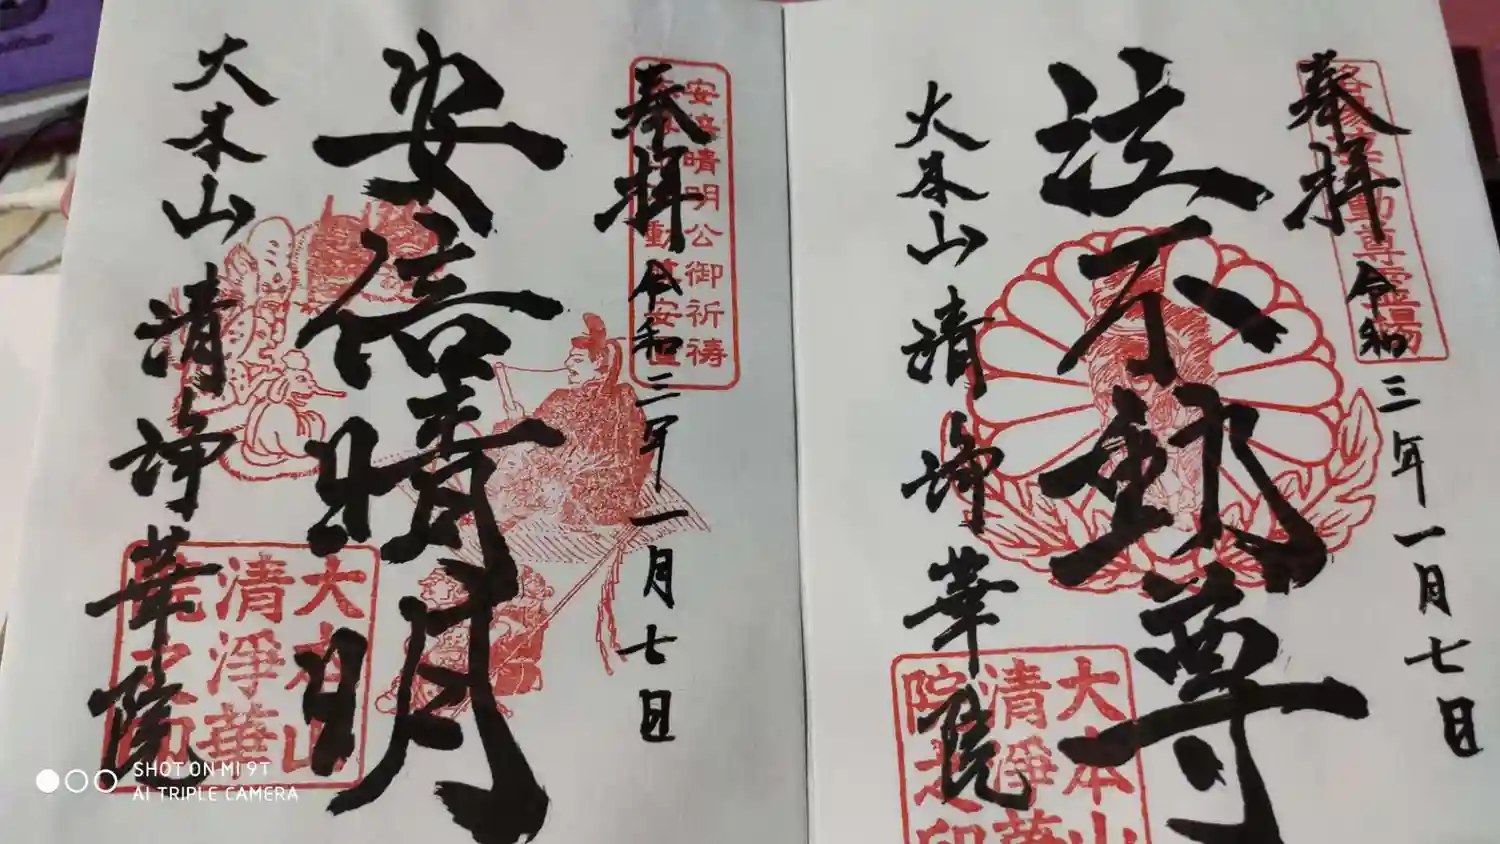 奉拝 令和三年一月七日
泣不動尊
大本山 清浄華院
大本山
清淨華
院之印
奉拝 令和三年一月七日
安倍晴明公御祈禱
安倍晴明
大本山 清浄華院
大本山
清淨華
院之印
SHOT ON MI 9T
AI TRIPLE CAMERA